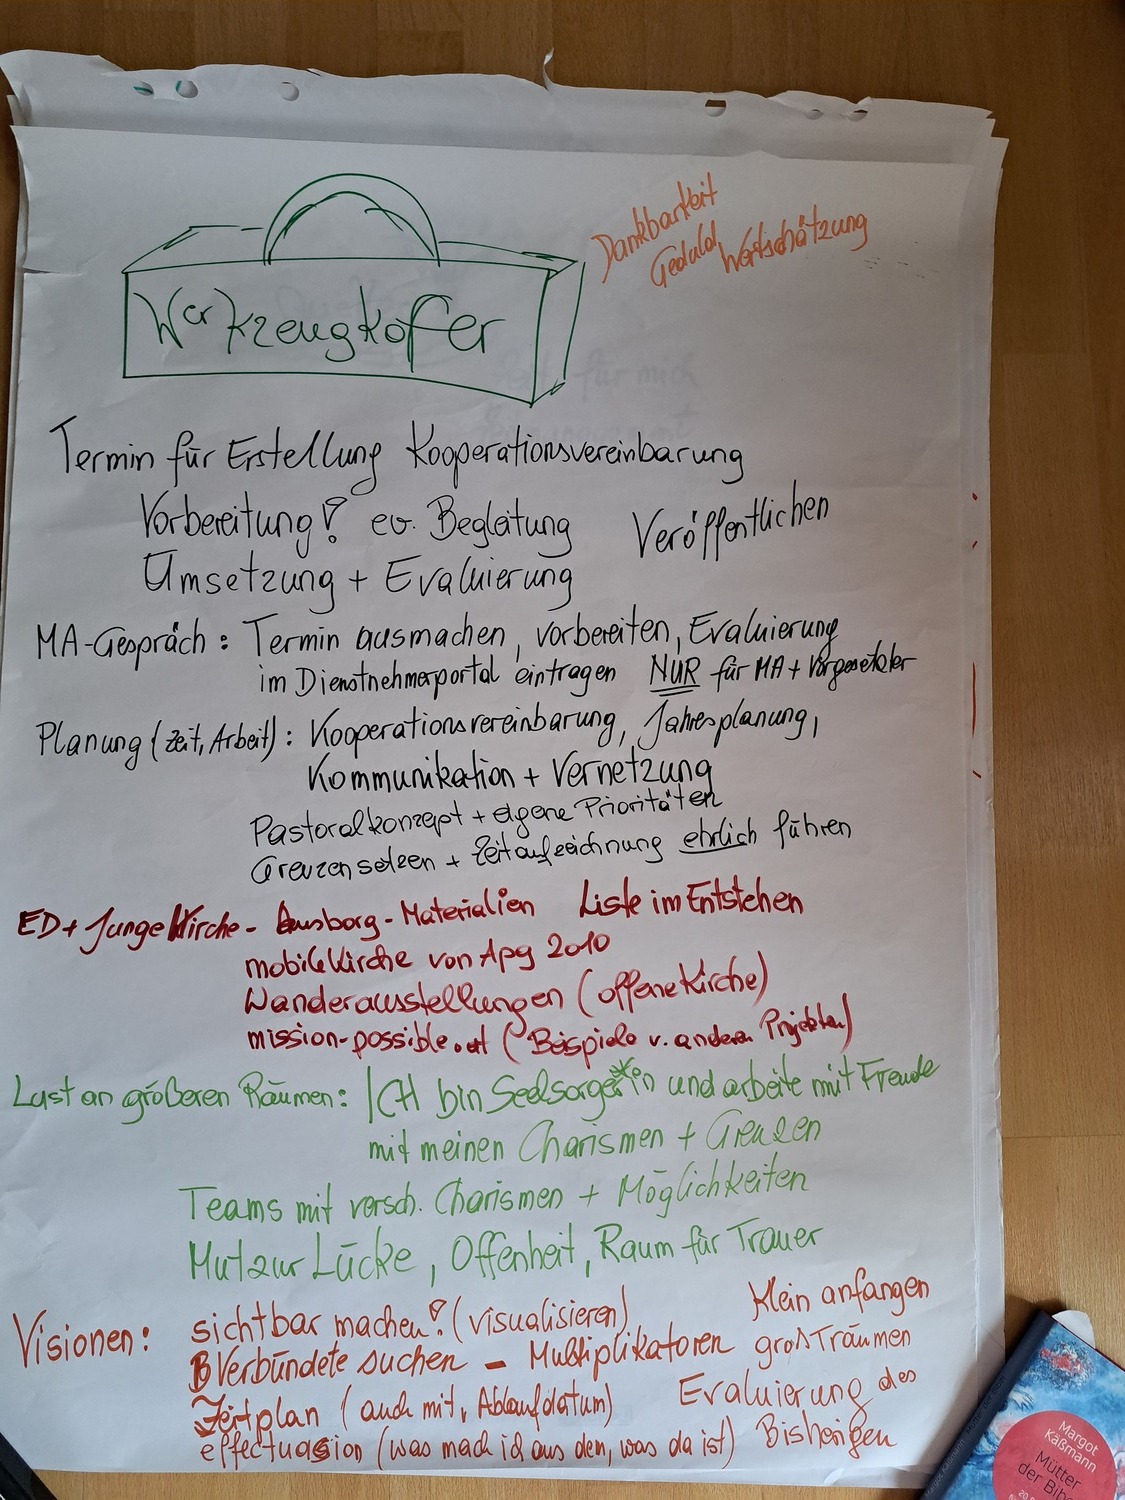 Dankbarkeit
Geduld Wertschätzung
Werkzeugkoffer
Termin für Erstellung Kooperationsvereinbarung
Vorbereitung! ev. Begleitung Veröffentlichen
Umsetzung + Evaluierung
MA-Gespräch: Termin ausmachen, vorbereiten, Evaluierung
im Dienstnehmerportal eintragen NUR für MA + Vorgesetzter
Planung (Zeit, Arbeit): Kooperationsvereinbarung, Jahresplanung,
Kommunikation + Vernetzung
Pastoralkonzept + eigene Prioritäten
Grenzen setzen + Zeitaufzeichnung ehrlich führen
ED + Junge Kirche - Ausborg-Materialien Liste im Entstehen
mobile Kirche von Apg 2010
Wanderausstellungen (offene Kirche)
mission-possible.at (Beispiele v. anderen Projekten)
Lust an größeren Räumen: ICH bin Seelsorger*in und arbeite mit Freude
mit meinen Charismen + Grenzen
Teams mit versch. Charismen + Möglichkeiten
Mut zur Lücke, Offenheit, Raum für Trauer
Visionen: sichtbar machen! (visualisieren) Klein anfangen
Verbündete suchen - Multiplikatoren groß Träumen
Zeitplan (auch mit, Ablaufdatum) Evaluierung des
effectuasion (was mach ich aus dem, was da ist) Bisherigen
Margot
Käßmann
Mütter
der Bibel